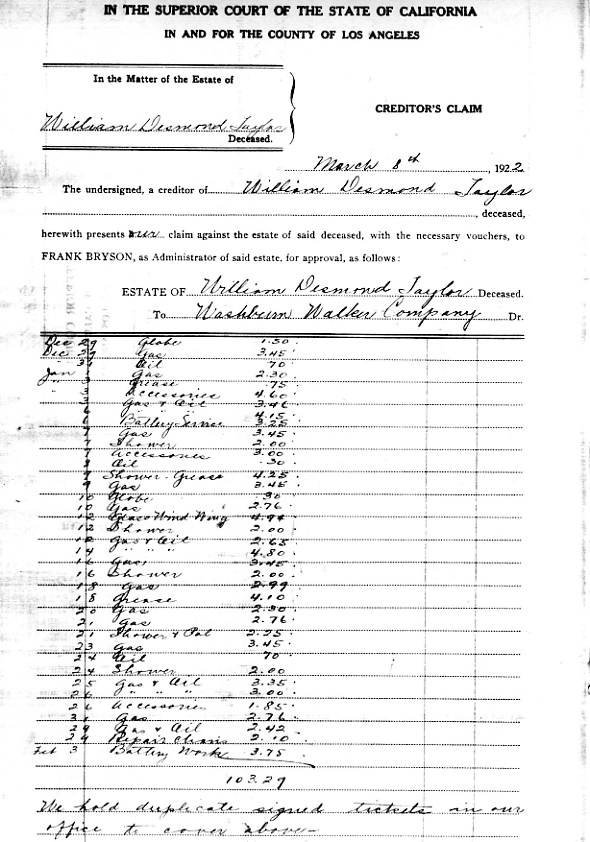 IN THE SUPERIOR COURT OF THE STATE OF CALIFORNIA
IN AND FOR THE COUNTY OF LOS ANGELES
In the Matter of the Estate of
William Desmond Taylor
Deceased.
CREDITOR'S CLAIM
March 8th, 1922
The undersigned, a creditor of William Desmond Taylor
, deceased,
herewith presents our claim against the estate of said deceased, with the necessary vouchers, to
FRANK BRYSON, as Administrator of said estate, for approval, as follows:
ESTATE OF William Desmond Taylor Deceased.
To Washburn Walker Company Dr.
Dec 29 Globe 1.50
Dec 29 Gas 3.45
31 Oil 70
Jan 1 Gas 2.30
" Grease .75
" Accessories 4.60
Gas & Oil 3.46
" " 4.15
Battery Service 3.25
Gas 3.45
7 Shower 2.00
7 Accessories 3.00
Oil .30
9 Shower - Grease 4.25
9 Gas 3.45
10 Globe 30
10 Gas 2.76
12 Glass Wind Wing 4.94
12 Shower 2.00
12 Gas & Oil 2.65
14 " " " 4.80
16 Gas 3.45
16 Shower 2.00
18 Gas 2.99
18 Grease 4.10
20 Gas 2.30
21 Gas 2.76
21 Shower & Pol 2.25
23 Gas 3.45
24 Oil 70
24 Shower 2.00
25 Gas & Oil 3.35
26 " " " 3.00
26 Accessories 1.85
31 Gas 2.76
29 Gas & Oil 2.42
29 Repair Chains 2.10
Feb 3 Battery Work 3.75
103.29
We hold duplicate signed tickets in our
office to cover above -